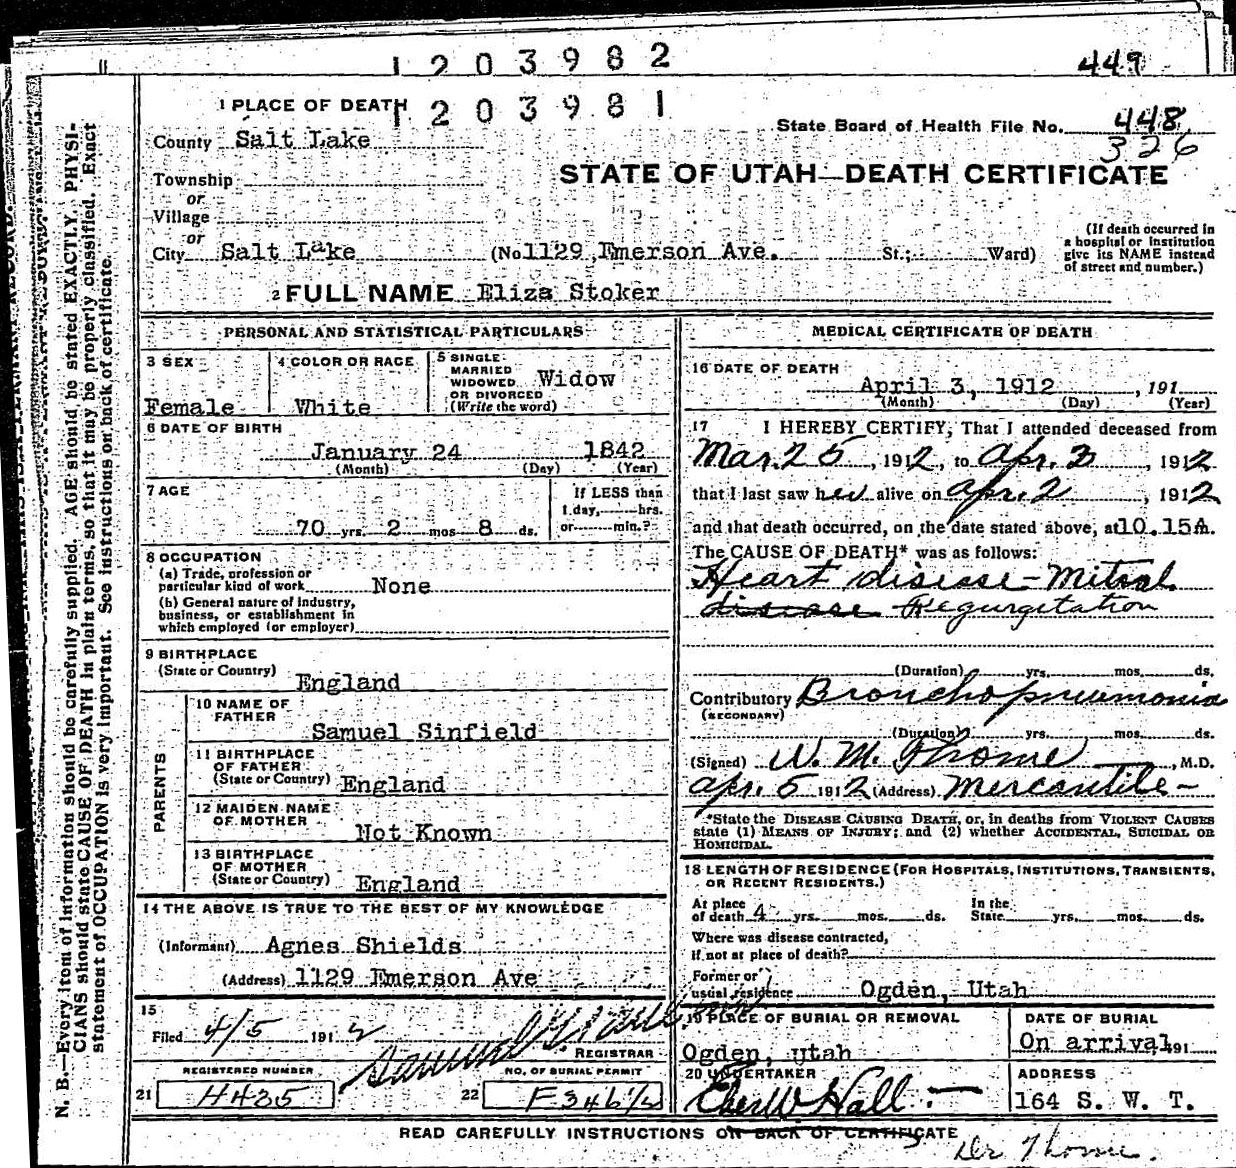 1203982
449
1 PLACE OF DEATH
1203981
State Board of Health File No. 448
326
County Salt Lake
STATE OF UTAH—DEATH CERTIFICATE
Township
or
Village
or
City Salt Lake (No 1129 Emerson Ave. St.; Ward)
(If death occurred in
a hospital or institution
give its NAME instead
of street and number.)
2 FULL NAME Eliza Stoker
PERSONAL AND STATISTICAL PARTICULARS
3 SEX
Female
4 COLOR OR RACE
White
5 SINGLE
MARRIED
WIDOWED
OR DIVORCED
(Write the word)
Widow
6 DATE OF BIRTH
January 24 1842
(Month) (Day) (Year)
7 AGE
70 yrs. 2 mos 8 ds.
If LESS than
1 day, hrs.
or min.?
8 OCCUPATION
(a) Trade, profession or
particular kind of work None
(b) General nature of industry,
business, or establishment in
which employed (or employer)
9 BIRTHPLACE
(State or Country)
England
PARENTS
10 NAME OF
FATHER
Samuel Sinfield
11 BIRTHPLACE
OF FATHER
(State or Country) England
12 MAIDEN NAME
OF MOTHER
Not Known
13 BIRTHPLACE
OF MOTHER
(State or Country) England
14 THE ABOVE IS TRUE TO THE BEST OF MY KNOWLEDGE
(Informant) Agnes Shields
(Address) 1129 Emerson Ave
15
Filed 4/5 1912
REGISTRAR
REGISTERED NUMBER
21 H435
NO. OF BURIAL PERMIT
22
MEDICAL CERTIFICATE OF DEATH
16 DATE OF DEATH
April 3, 1912, 191
(Month) (Day) (Year)
17 I HEREBY CERTIFY, That I attended deceased from
Mar. 25, 1912, to Apr. 3, 1912
that I last saw her alive on Apr. 2, 1912
and that death occurred, on the date stated above, at 10.15A.
The CAUSE OF DEATH* was as follows:
Heart disease - Mitral
disease Regurgitation
(Duration) yrs. mos. ds.
Contributory Bronchopneumonia
(SECONDARY)
(Duration) yrs. mos. ds.
(Signed) W. M. Thome, M.D.
Apr. 5 1912 (Address) Mercantile -
*State the DISEASE CAUSING DEATH, or, in deaths from VIOLENT CAUSES
state (1) MEANS OF INJURY; and (2) whether ACCIDENTAL, SUICIDAL OR
HOMICIDAL.
18 LENGTH OF RESIDENCE (FOR HOSPITALS, INSTITUTIONS, TRANSIENTS,
OR RECENT RESIDENTS.)
At place
of death 4 yrs. mos. ds.
In the
State yrs. mos. ds.
Where was disease contracted,
If not at place of death?
Former or
usual residence Ogden, Utah
19 PLACE OF BURIAL OR REMOVAL
Ogden, utah
DATE OF BURIAL
On arrival, 191
20 UNDERTAKER
Eber W Hall
ADDRESS
164 S. W. T.
READ CAREFULLY INSTRUCTIONS ON BACK OF CERTIFICATE
Dr Thome.
N. B.—Every item of information should be carefully supplied. AGE should be stated EXACTLY. PHYSI-
CIANS should state CAUSE OF DEATH in plain terms, so that it may be properly classified. Exact
statement of OCCUPATION is very important. See instructions on back of certificate.